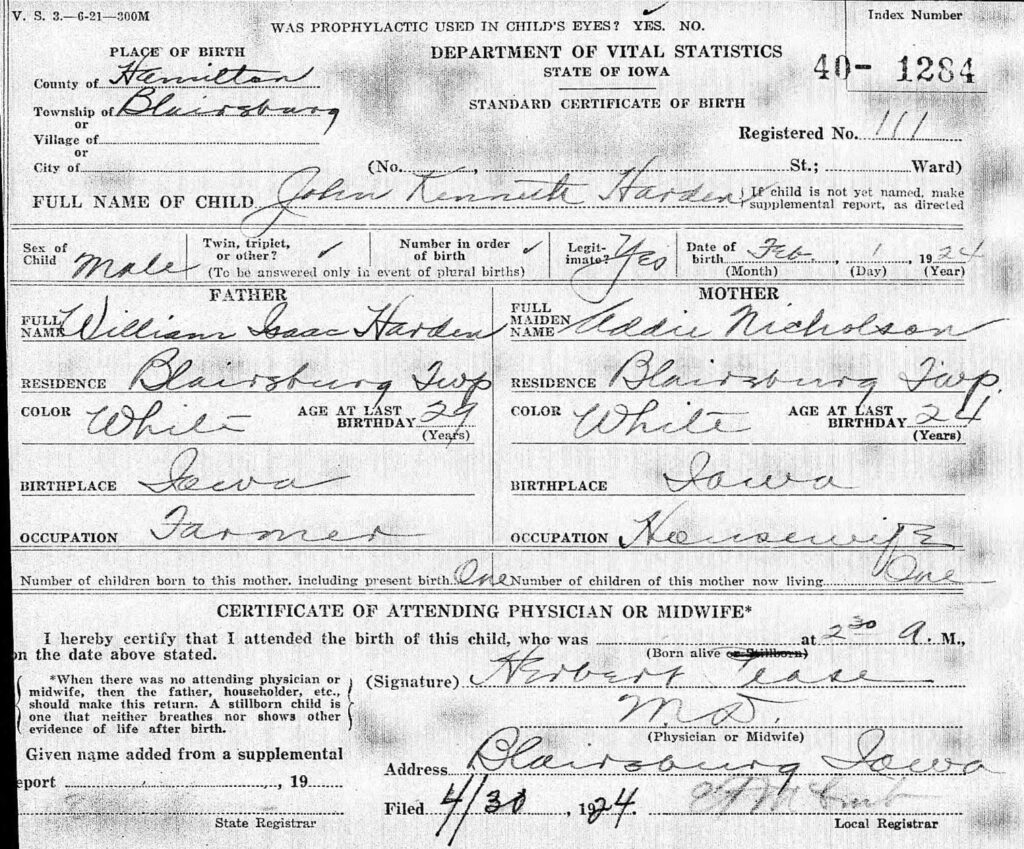 V. S. 3.—6-21—300M
WAS PROPHYLACTIC USED IN CHILD'S EYES? YES. NO.
Index Number
PLACE OF BIRTH
DEPARTMENT OF VITAL STATISTICS
STATE OF IOWA
40- 1284
County of Hamilton
Township of Blairsburg
STANDARD CERTIFICATE OF BIRTH
or
Village of
Registered No. 111
or
City of
(No. , St.; Ward)
FULL NAME OF CHILD John Kenneth Harden
{ If child is not yet named, make
supplemental report, as directed
Sex of Child Male
Twin, triplet, or other? ✓
Number in order of birth ✓
(To be answered only in event of plural births)
Legitimate? Yes
Date of birth Feb. , 1 , 1924
(Month) (Day) (Year)
FATHER
FULL NAME William Isaac Harden
RESIDENCE Blairsburg Twp
COLOR White AGE AT LAST BIRTHDAY 29
(Years)
BIRTHPLACE Iowa
OCCUPATION Farmer
MOTHER
FULL MAIDEN NAME Addie Nicholson
RESIDENCE Blairsburg Twp.
COLOR White AGE AT LAST BIRTHDAY 24
(Years)
BIRTHPLACE Iowa
OCCUPATION Housewife
Number of children born to this mother, including present birth One Number of children of this mother now living One
CERTIFICATE OF ATTENDING PHYSICIAN OR MIDWIFE*
I hereby certify that I attended the birth of this child, who was at 2 30 A. M.,
on the date above stated.
(Born alive or Stillborn)
*When there was no attending physician or
midwife, then the father, householder, etc.,
should make this return. A stillborn child is
one that neither breathes nor shows other
evidence of life after birth.
(Signature) Herbert Pease
M.D.
(Physician or Midwife)
Given name added from a supplemental
eport , 19
State Registrar
Address Blairsburg Iowa
Filed 4/30 , 1924.
Local Registrar